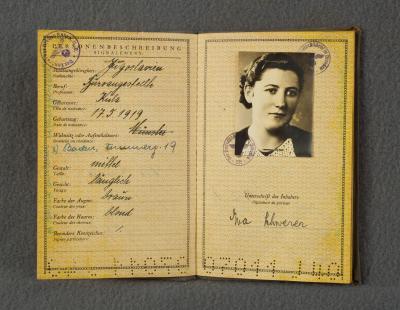 PERSONENBESCHREIBUNG
SIGNALEMENT
Staatsangehörigkeit: Jugoslavien
Nationalité:
Beruf: Büroangestellte
Profession:
Geburtsort: Kula
Lieu de naissance:
Geburtstag: 17.5.1919
Date de naissance:
Wohnsitz oder Aufenthaltsort: Münster
Domicile ou résidence:
Baden, 19
Gestalt: mittel
Taille:
Gesicht: länglich
Visage:
Farbe der Augen: braun
Couleur des yeux:
Farbe des Haares: blond
Couleur des cheveux:
Besondere Kennzeichen: /.
Signes particuliers:
Unterschrift des Inhabers
Signature du porteur
Iva Scherer